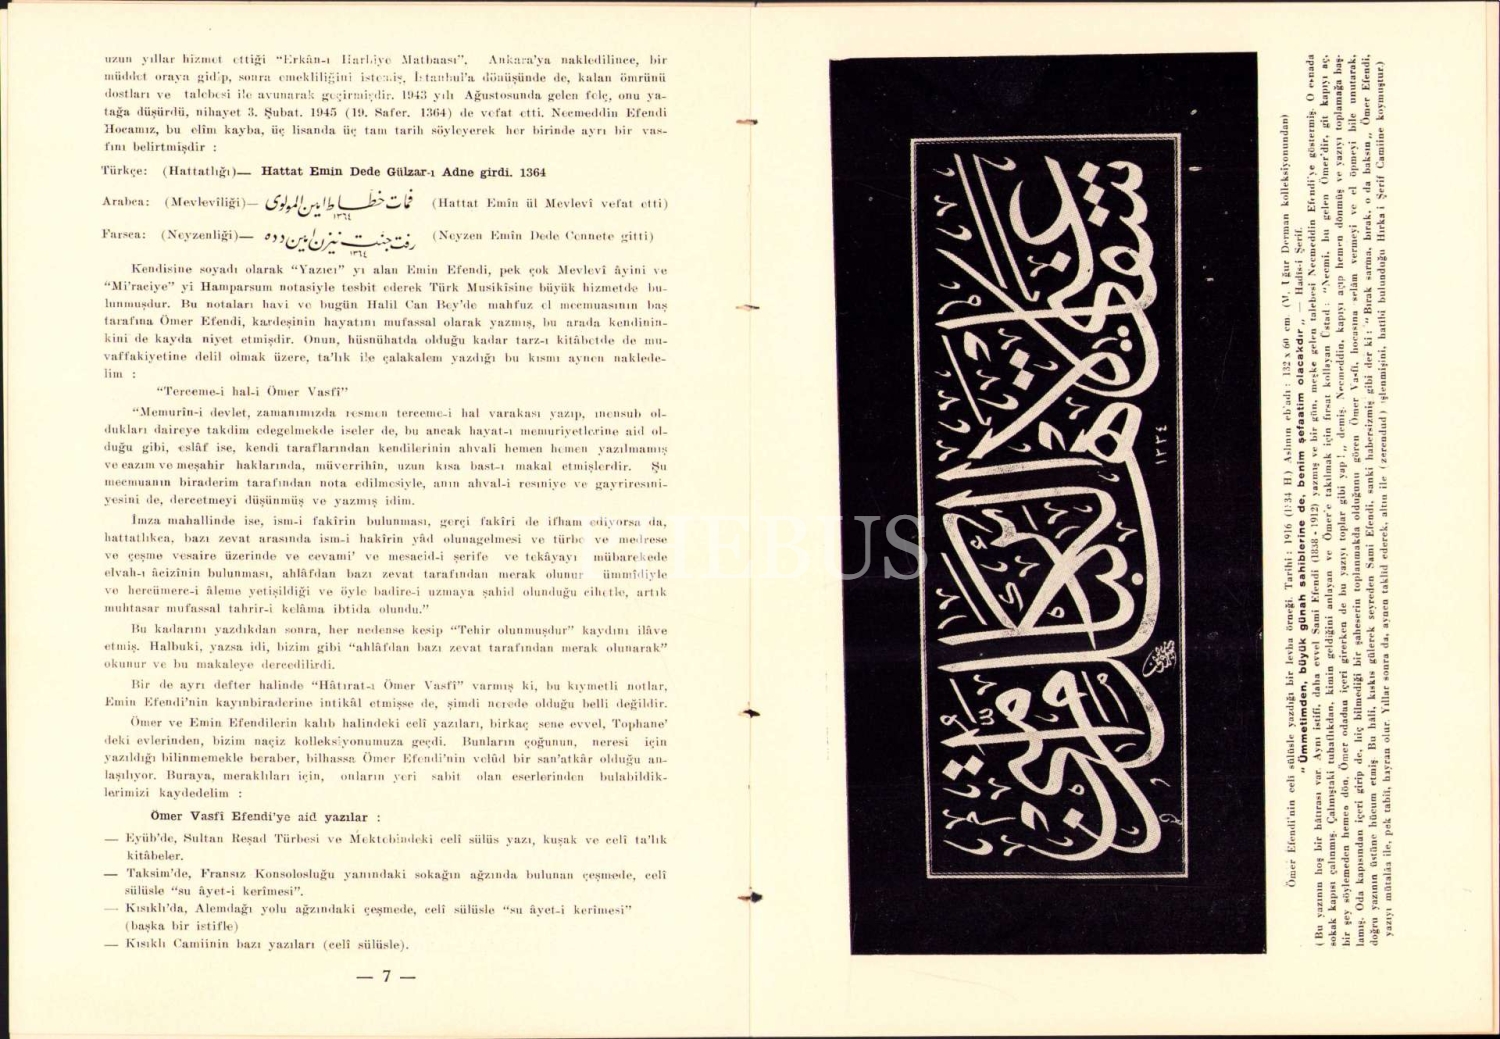 uzun yıllar hizmet ettiği “Erkân-ı Harbiye Matbaası”, Ankara'ya nakledilince, bir
müddet oraya gidip, sonra emekliliğini istemiş, İstanbul'a dönüşünde de, kalan ömrünü
dostları ve talebesi ile avunarak geçirmişdir. 1943 yılı Ağustosunda gelen felç, onu ya-
tağa düşürdü, nihayet 3. Şubat. 1945 (19. Safer. 1364) de vefat etti. Necmeddin Efendi
Hocamız, bu elîm kayba, üç lisanda üç tam tarih söyleyerek her birinde ayrı bir vas-
fını belirtmişdir :
Türkçe: (Hattatlığı)— Hattat Emin Dede Gülzar-ı Adne girdi. 1364
Arabca: (Mevleviliği)— فات خطاط امین المولوی ١٣٦٤ (Hattat Emîn ül Mevlevî vefat etti)
Farsca: (Neyzenliği)— رفت جنت نیزن امین دده ١٣٦٤ (Neyzen Emîn Dede Cennete gitti)
Kendisine soyadı olarak “Yazıcı” yı alan Emin Efendi, pek çok Mevlevî âyini ve
“Mi'raciye” yi Hamparsum notasiyle tesbit ederek Türk Musikisine büyük hizmetde bu-
lunmuşdur. Bu notaları havi ve bugün Halil Can Bey'de mahfuz el mecmuasının baş
tarafına Ömer Efendi, kardeşinin hayatını mufassal olarak yazmış, bu arada kendinin-
kini de kayda niyet etmişdir. Onun, hüsnühatda olduğu kadar tarz-ı kitâbetde de mu-
vaffakiyetine delil olmak üzere, ta'lık ile çalakalem yazdığı bu kısmı aynen naklede-
lim :
“Terceme-i hal-i Ömer Vasfî”
“Memurîn-i devlet, zamanımızda resmen terceme-i hal varakası yazıp, mensub ol-
dukları daireye takdim edegelmekde iseler de, bu ancak hayat-ı memuriyetlerine aid ol-
duğu gibi, eslâf ise, kendi taraflarından kendilerinin ahvali hemen hemen yazılmamış
ve eazım ve meşahir haklarında, müverrihîn, uzun kısa bast-ı makal etmişlerdir. Şu
mecmuanın biraderim tarafından nota edilmesiyle, anın ahval-i resmiye ve gayriresmi-
yesini de, dercetmeyi düşünmüş ve yazmış idim.
İmza mahallinde ise, ism-i fakîrin bulunması, gerçi fakîri de ifham ediyorsa da,
hattatlıkca, bazı zevat arasında ism-i hakîrin yâd olunagelmesi ve türbe ve medrese
ve çeşme vesaire üzerinde ve cevami' ve mesacid-i şerife ve tekâyayı mübarekede
elvah-ı âcizînin bulunması, ahlâfdan bazı zevat tarafından merak olunur ümmîdiyle
ve hercümerc-i âleme yetişildiği ve öyle badire-i uzmaya şahid olunduğu cihetle, artık
muhtasar mufassal tahrir-i kelâma ibtida olundu.”
Bu kadarını yazdıkdan sonra, her nedense kesip “Tehir olunmuşdur” kaydını ilâve
etmiş. Halbuki, yazsa idi, bizim gibi “ahlâfdan bazı zevat tarafından merak olunarak”
okunur ve bu makaleye dercedilirdi.
Bir de ayrı defter halinde “Hâtırat-ı Ömer Vasfî” varmış ki, bu kıymetli notlar,
Emin Efendi'nin kayınbiraderine intikâl etmişse de, şimdi nerede olduğu belli değildir.
Ömer ve Emin Efendilerin kalıb halindeki celî yazıları, birkaç sene evvel, Tophane'
deki evlerinden, bizim naçiz kolleksiyonumuza geçdi. Bunların çoğunun, neresi için
yazıldığı bilinmemekle beraber, bilhassa Ömer Efendi'nin velûd bir san'atkâr olduğu an-
laşılıyor. Buraya, meraklıları için, onların yeri sabit olan eserlerinden bulabildik-
lerimizi kaydedelim :
Ömer Vasfî Efendi'ye aid yazılar :
— Eyüb'de, Sultan Reşad Türbesi ve Mektebindeki celî sülüs yazı, kuşak ve celî ta'lık
kitâbeler.
— Taksim'de, Fransız Konsolosluğu yanındaki sokağın ağzında bulunan çeşmede, celî
sülüsle “su âyet-i kerîmesi”.
— Kısıklı'da, Alemdağı yolu ağzındaki çeşmede, celî sülüsle “su âyet-i kerîmesi”
(başka bir istifle)
— Kısıklı Camiinin bazı yazıları (celî sülüsle).
— 7 —
شفاعتی لاهل الکبائر من امتی
١٣٣٤
Ömer Efendi'nin celî sülüsle yazdığı bir levha örneği. Tarihi: 1916 (1334 H) Aslının eb'adı : 132 x 60 cm. (M. Uğur Derman kolleksiyonundan)
“ Ümmetimden, büyük günah sahiblerine de, benim şefaatim olacakdır „ — Hadis-i Şerif.
(Bu yazının hoş bir hâtırası var. Aynı istifi, daha evvel Sami Efendi (1838 - 1912) yazmış ve bir gün, meşke gelen talebesi Necmeddin Efendi'ye göstermiş. O esnada
sokak kapısı çalınmış. Çalınıştaki tuhaflıkdan, kimin geldiğini anlayan ve Ömer'e takılmak için fırsat kollayan Üstad : “Necmi, bu gelen Ömer'dir, git kapıyı aç,
bir şey söylemeden hemen dön. Ömer odadan içeri girerken de bu yazıyı toplar gibi yap !„ demiş. Necmeddin, kapıyı açıp hemen dönmüş ve yazıyı toplamağa baş-
lamış. Oda kapısından içeri girip de, hiç bilmediği bir şaheserin toplanmakda olduğunu gören Ömer Vasfî, hocasına selâm vermeyi ve el öpmeyi bile unutarak,
doğru yazının üstüne hücum etmiş. Bu hâli, kıskıs gülerek seyreden Sami Efendi, sanki habersizmiş gibi der ki : “ Bırak sarma, bırak, o da baksın„ Ömer Efendi,
yazıyı mütalâa ile, pek tabiî, hayran olur. Yıllar sonra da, aynen taklid ederek, altın ile (zerendud) işlenmişini, hatibi bulunduğu Hırka-i Şerif Camiine koymuştur.)